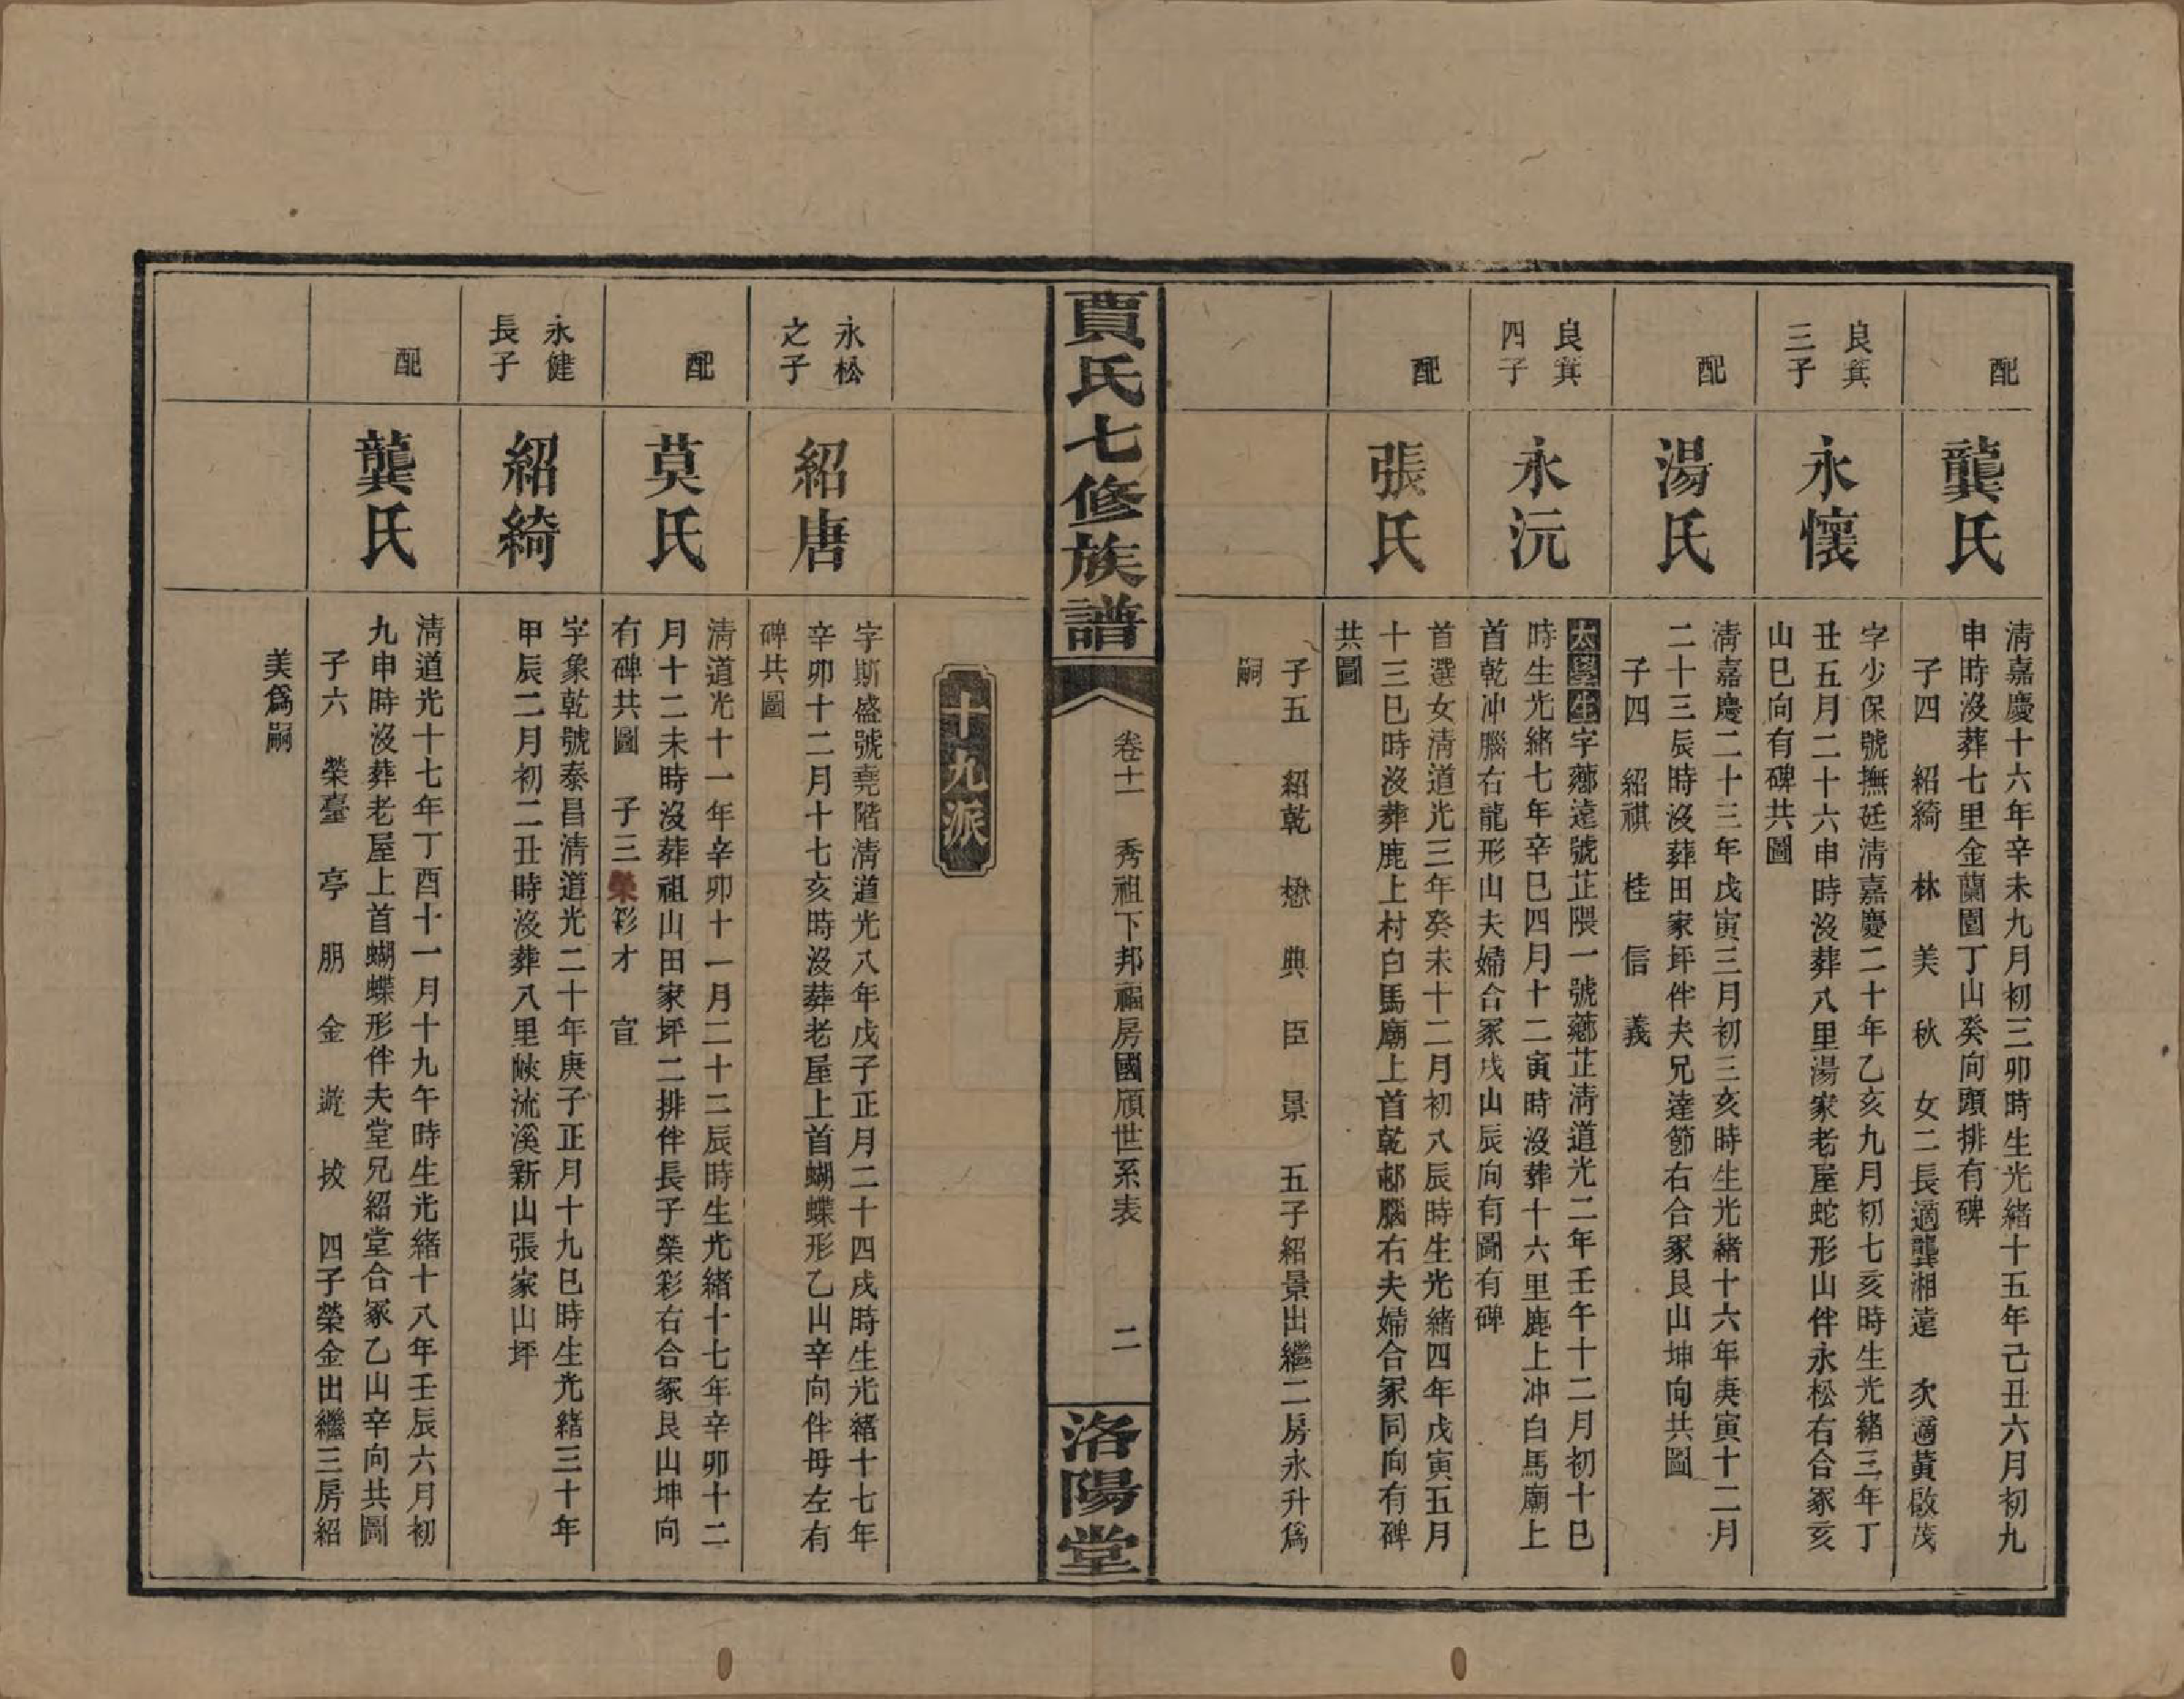 配
龔氏
清嘉慶十六年辛未九月初三卯時生光緒十五年己丑六月初九
申時沒葬七里金蘭園丁山癸向頭排有碑
子四 紹綺 林 美 秋 女二長適龔湘遠 次適黃啟茂
良箕
三子
永懷
字少保號撫廷清嘉慶二十年乙亥九月初七亥時生光緒三年丁
丑五月二十六申時沒葬八里湯家老屋蛇形山伴永松右合冢亥
山巳向有碑共圖
配
湯氏
清嘉慶二十三年戊寅三月初三亥時生光緒十六年庚寅十二月
二十三辰時沒葬田家坪伴夫兄達節右合冢艮山坤向共圖
子四 紹祺 桂 信 義
良箕
四子
永沅
太學生字薌遠號芷隈一號薌芷清道光二年壬午十二月初十巳
時生光緒七年辛巳四月十二寅時沒葬十六里鹿上冲白馬廟上
首乾冲腦右龍形山夫婦合冢戌山辰向有圖有碑
配
張氏
首選女清道光三年癸未十二月初八辰時生光緒四年戊寅五月
十三巳時沒葬鹿上村白馬廟上首乾邨腦右夫婦合冢同向有碑
共圖
子五 紹乾 懋 典 臣 景 五子紹景出繼二房永升爲
嗣
賈氏七修族譜
卷十一 秀祖下邦福房國頎世系表
二
洛陽堂
十九派
永松
之子
紹唐
字斯盛號堯階清道光八年戊子正月二十四戌時生光緒十七年
辛卯十二月十七亥時沒葬老屋上首蝴蝶形乙山辛向伴母左有
碑共圖
配
莫氏
清道光十一年辛卯十一月二十二辰時生光緒十七年辛卯十二
月十二未時沒葬祖山田家坪二排伴長子榮彩右合冢艮山坤向
有碑共圖 子三榮彩才 宣
永健
長子
紹綺
字象乾號泰昌清道光二十年庚子正月十九巳時生光緒三十年
甲辰二月初二丑時沒葬八里陝流溪新山張家山坪
配
龔氏
清道光十七年丁酉十一月十九午時生光緒十八年壬辰六月初
九申時沒葬老屋上首蝴蝶形伴夫堂兄紹堂合冢乙山辛向共圖
子六 榮臺 亭 朋 金 遊 拔 四子榮金出繼三房紹
美爲嗣